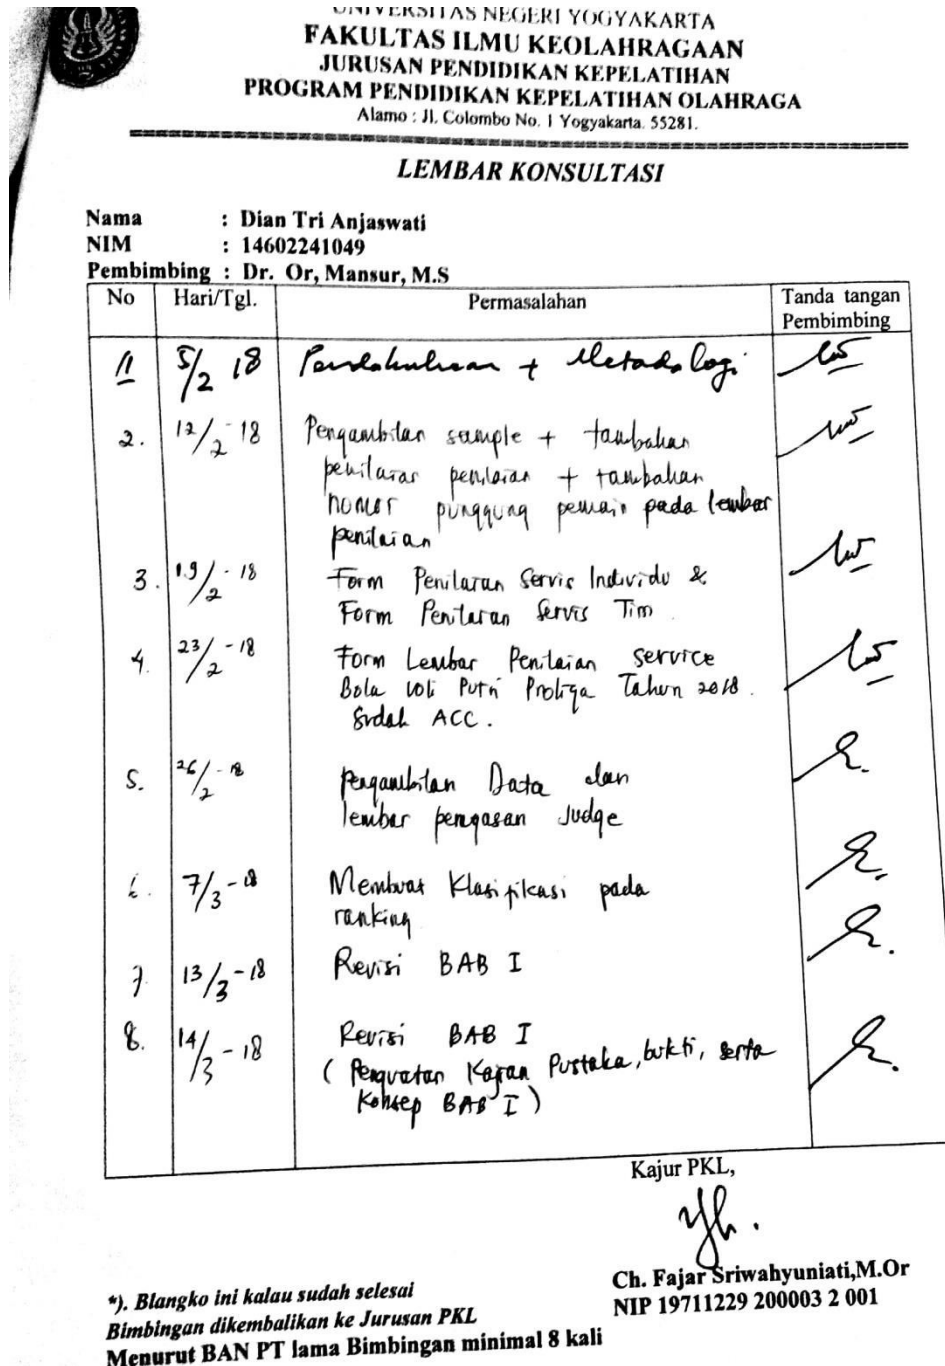 UNIVERSITAS NEGERI YOGYAKARTA
FAKULTAS ILMU KEOLAHRAGAAN
JURUSAN PENDIDIKAN KEPELATIHAN
PROGRAM PENDIDIKAN KEPELATIHAN OLAHRAGA
Alamo : Jl. Colombo No. 1 Yogyakarta. 55281.
LEMBAR KONSULTASI
Nama : Dian Tri Anjaswati
NIM : 14602241049
Pembimbing : Dr. Or, Mansur, M.S
No Hari/Tgl. Permasalahan Tanda tangan
Pembimbing
1 5/2 18 Pendahuluan + Metodologi
2. 12/2-18 Pengambilan sample + tambahan
penilaian penilaian + tambahan
nomor punggung pemain pada lembar
penilaian
3. 19/2-18 Form Penilaian Servis Individu &
Form Penilaian Servis Tim.
4. 23/2-18 Form Lembar Penilaian service
Bola Voli Putri Proliga Tahun 2018.
Sudah ACC.
5. 26/2-18 Pengambilan Data dan
lembar penugasan Judge
6. 7/3-18 Membuat Klasifikasi pada
ranking
7. 13/3-18 Revisi BAB I
8. 14/3-18 Revisi BAB I
( Penguatan Kajian Pustaka, bukti, serta
Konsep BAB I )
Kajur PKL,
Ch. Fajar Sriwahyuniati,M.Or
NIP 19711229 200003 2 001
*). Blangko ini kalau sudah selesai
Bimbingan dikembalikan ke Jurusan PKL
Menurut BAN PT lama Bimbingan minimal 8 kali